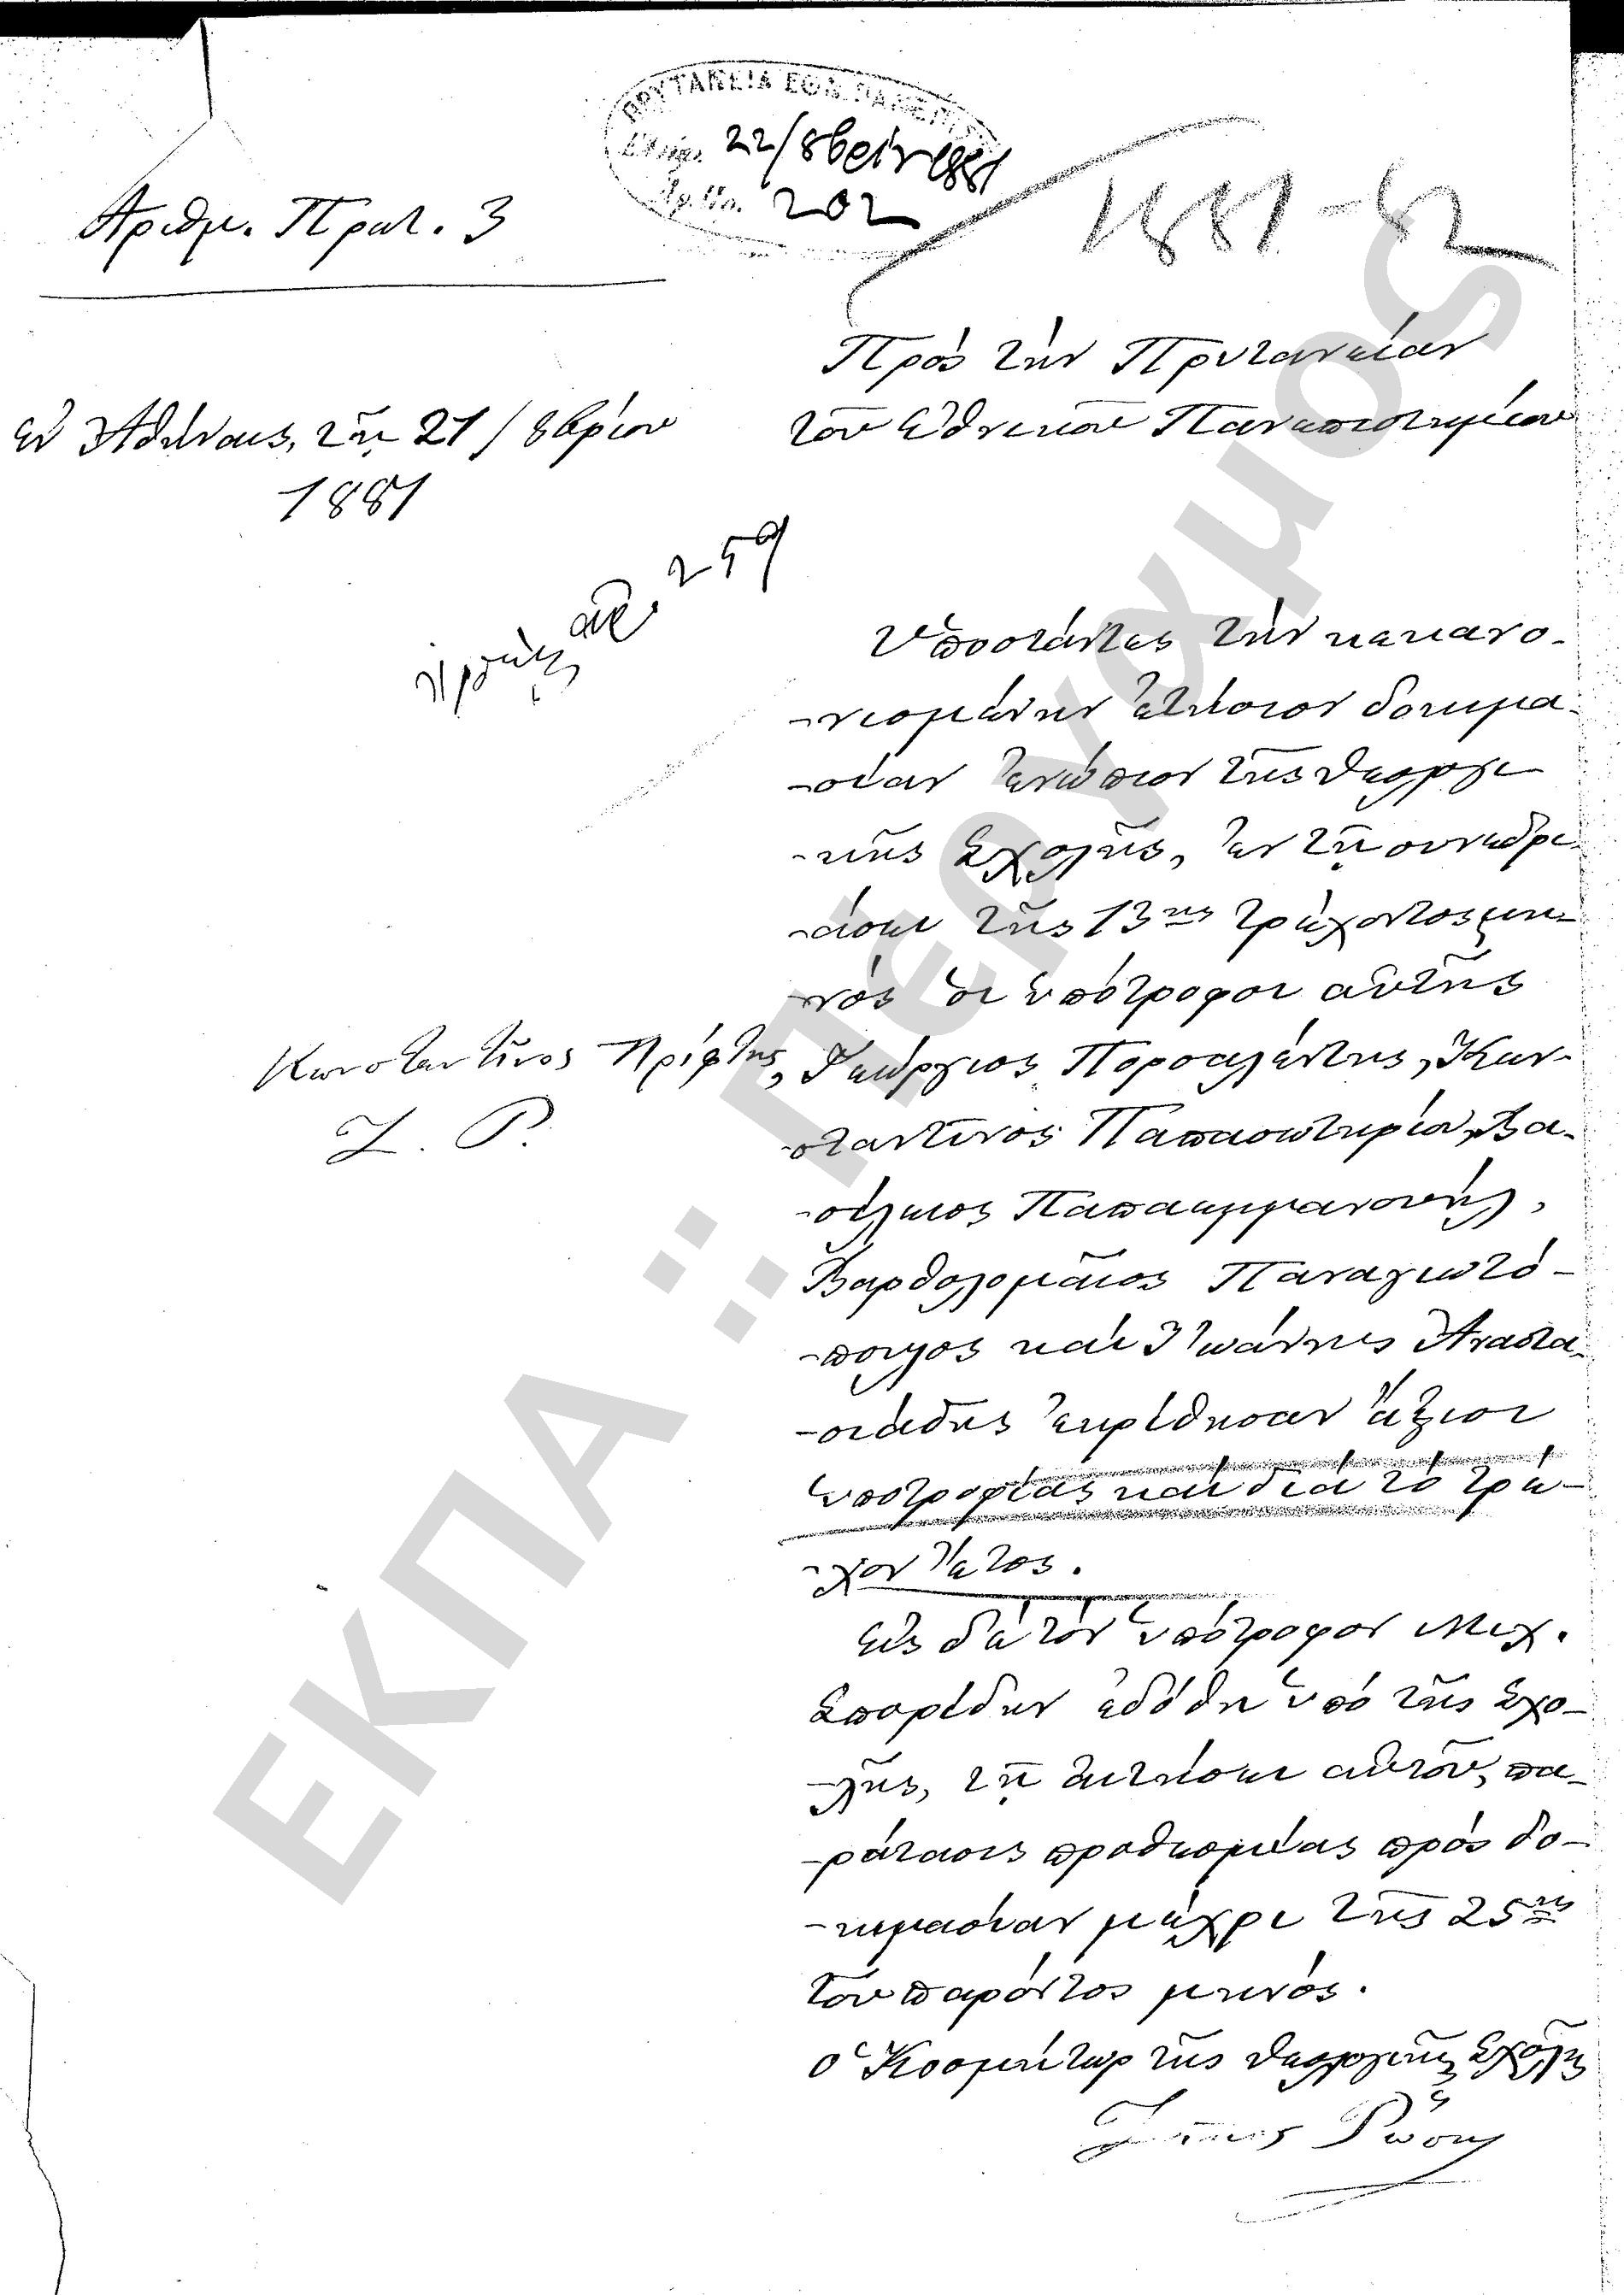 ΠΡΥΤΑΝΕΙΑ ΕΘΝ. ΠΑΝΕΠΙΣ
22/8βρίου 1881
Ἀρ. Πρ. 202
1881-82
Ἀριθμ. Πρωτ. 3
Πρὸς τὴν Πρυτανείαν
τοῦ Ἐθνικοῦ Πανεπιστημίου
Ἐν Ἀθήναις, τῇ 21/8βρίου
1881
259
Ὑποστάντες τὴν κεκανο-
-νισμένην ἐτήσιον δοκιμα-
-σίαν ἐνώπιον τῆς Θεολογι-
-κῆς Σχολῆς, ἐν τῇ συνεδρι-
-άσει τῆς 13ης τρέχοντος μη-
-νὸς οἱ ὑπότροφοι αὐτῆς
Κωνσταντῖνος Πρίφτης, Γεώργιος Ποροαλέντης, Κων-
Ζ. Ρ.
-σταντῖνος Παπασωτηρίου, Βα-
-σίλειος Παπαεμμανουήλ,
Βαρθολομαῖος Παναγιωτό-
-πουλος καὶ Ἰωάννης Ἀναστα-
-σιάδης ἐκρίθησαν ἄξιοι
ὑποτροφίας καὶ διὰ τὸ τρέ-
-χον ἔτος.
Εἰς δὲ τὸν ὑπότροφον Μιχ.
Σπορίδην ἐδόθη ὑπὸ τῆς Σχο-
-λῆς, τῇ αἰτήσει αὐτοῦ, πα-
-ράτασις προθεσμίας πρὸς δο-
-κιμασίαν μέχρι τῆς 25ης
τοῦ παρόντος μηνός.
Ὁ Κοσμήτωρ τῆς Θεολογικῆς Σχολῆς
Ζῆκος Ῥώσης
ΕΚΠΑ :: Πέργαμος